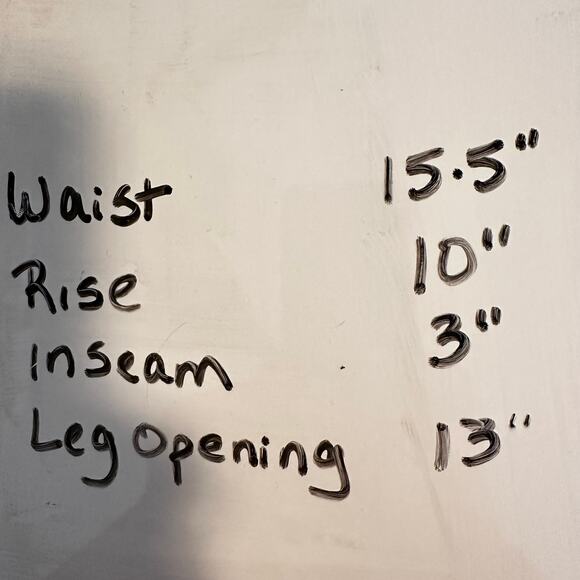 Waist 15.5"
Rise 10"
Inseam 3"
Leg Opening 13"